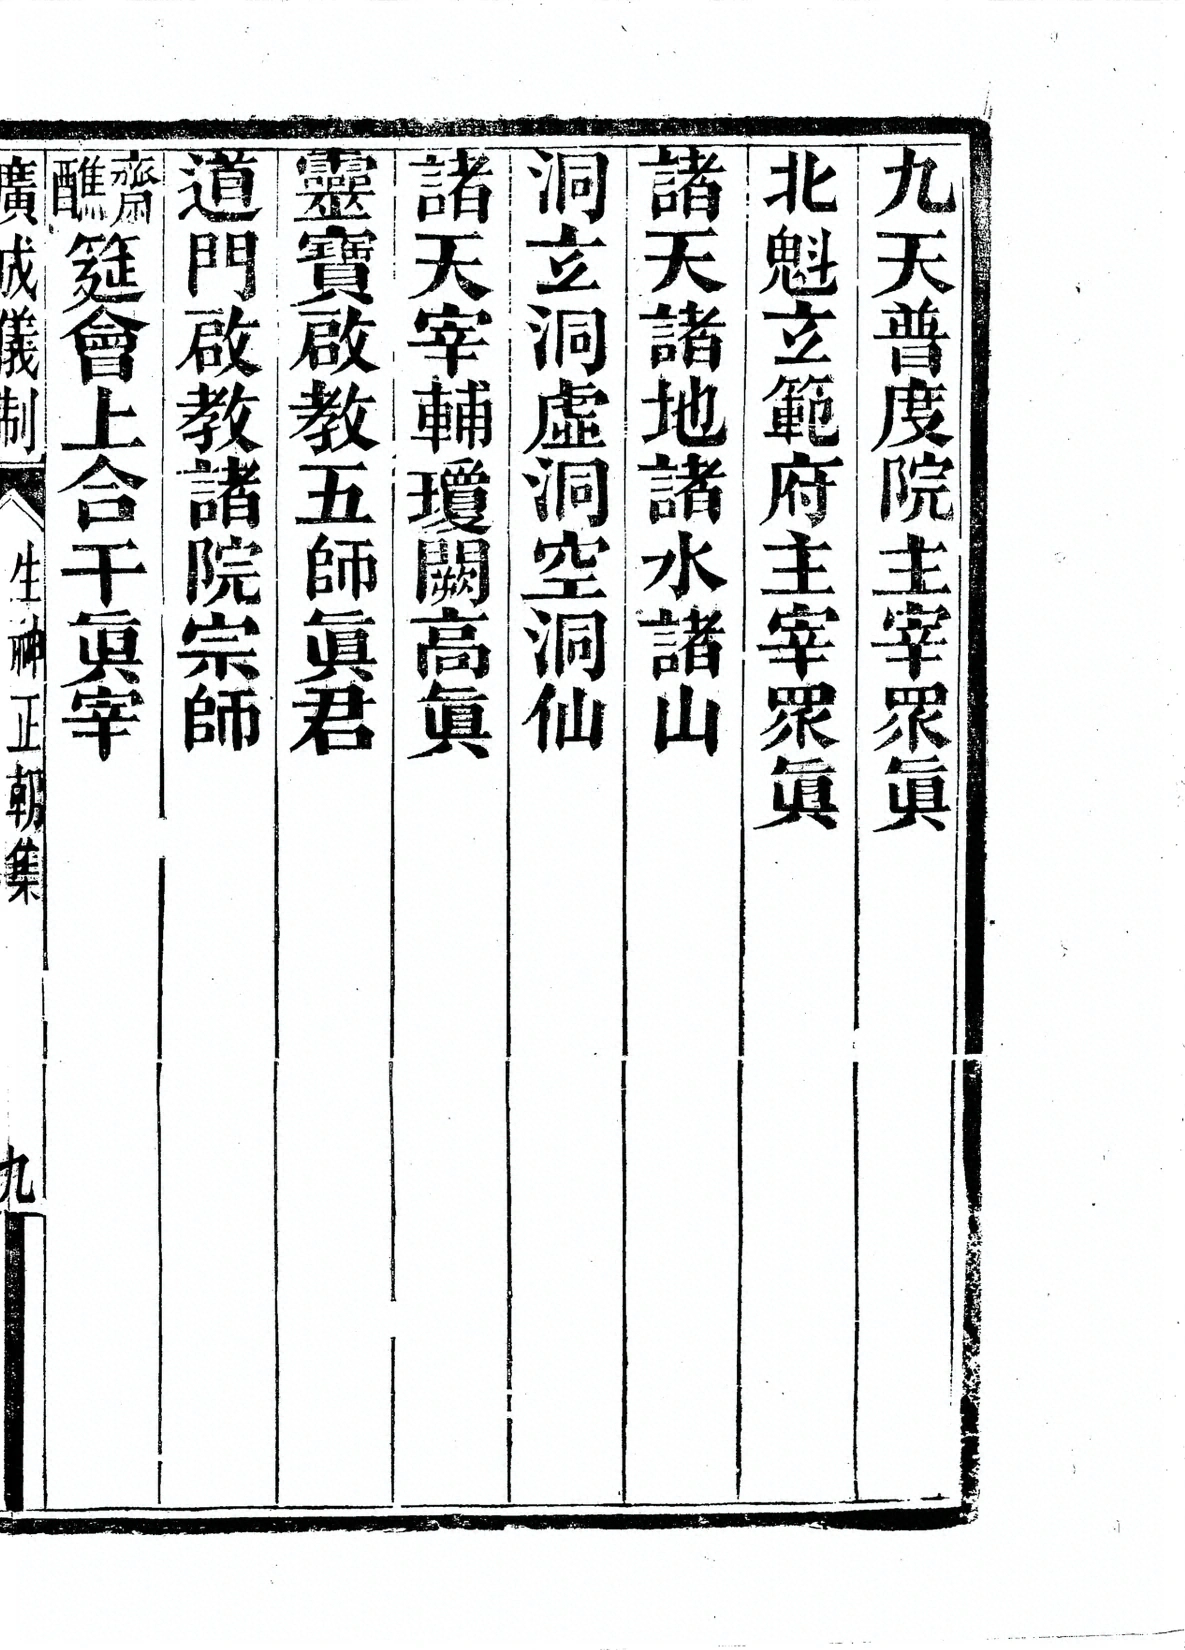 九天普度院主宰眾眞
北魁立範府主宰眾眞
諸天諸地諸水諸山
洞立洞虛洞空洞仙
諸天宰輔瓊闕高眞
靈寶啟教五師眞君
道門啟教諸院宗師
齋醮筵會上合干眞宰
廣成儀制 生神正朝集 九